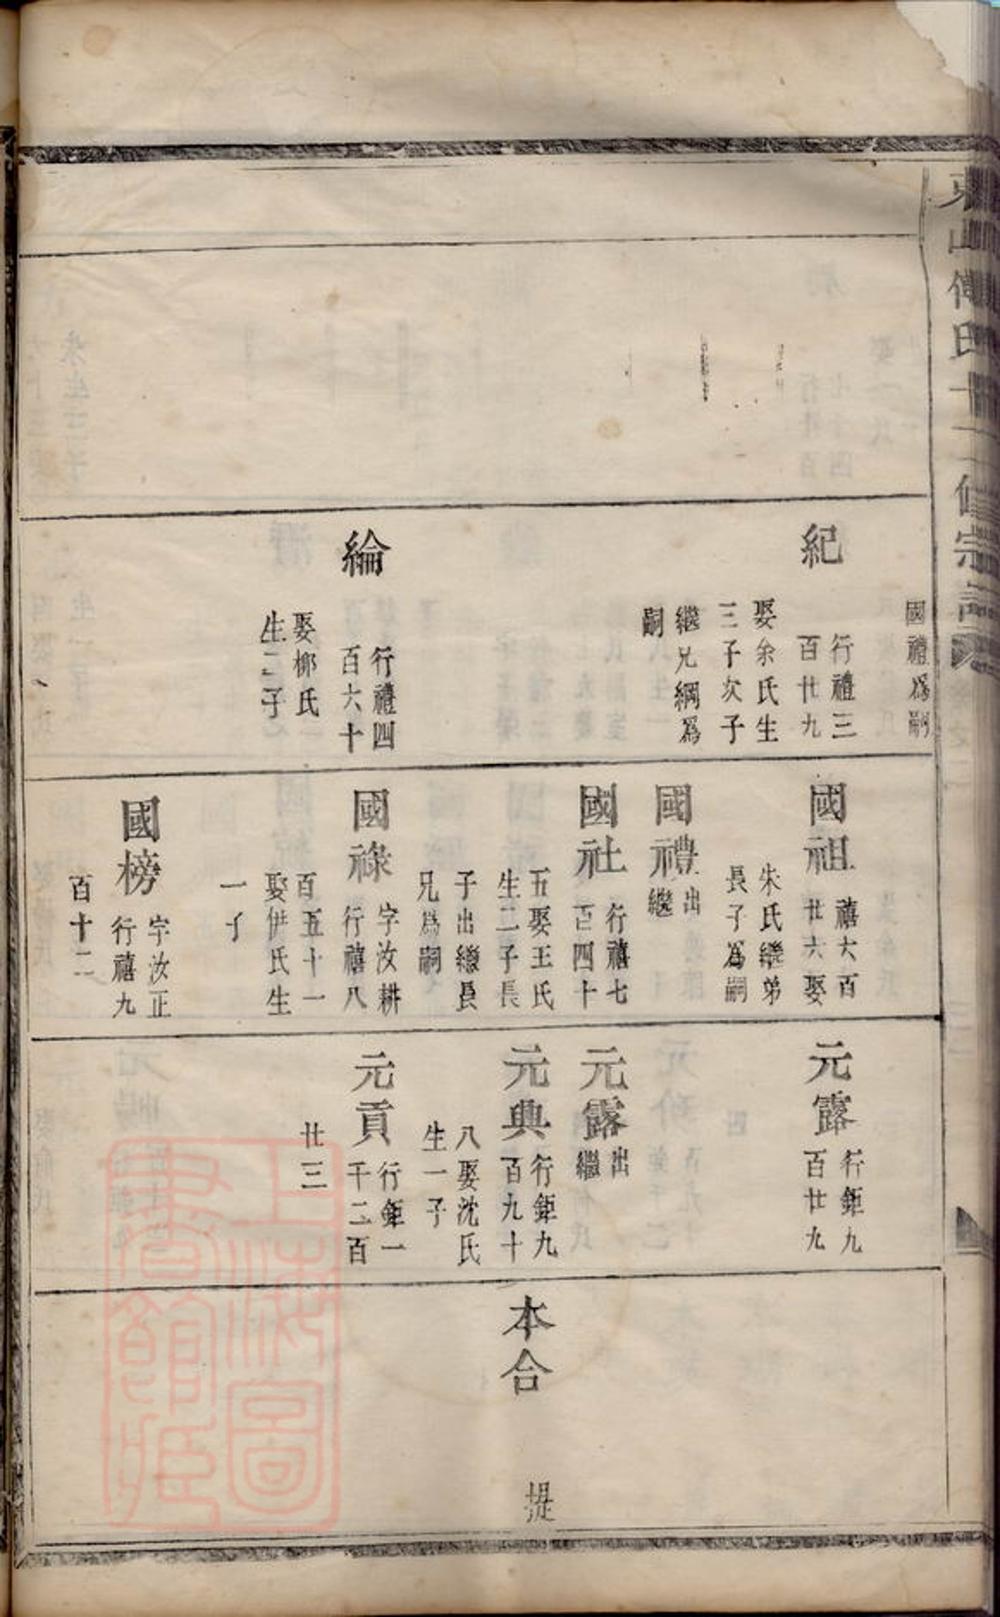 東山傅氏十一修宗譜
國禮為嗣
紀
行禮三
百廿九
娶余氏生
三子次子
繼兄綱為
嗣
綸
行禮四
百六十
娶柳氏
生二子
國祖
禧六百
廿六娶
朱氏繼弟
長子為嗣
國禮
出
繼
國社
行禧七
百四十
五娶王氏
生二子長
子出繼長
兄為嗣
國祿
字汝耕
行禧八
百五十一
娶伊氏生
一子
國榜
字汝正
行禧九
百十二
元露
行鉅九
百廿九
元露
出
繼
元典
行鉅九
百九十
八娶沈氏
生一子
元貢
行鉅一
千二百
廿三
本合
提
上海圖
書館藏